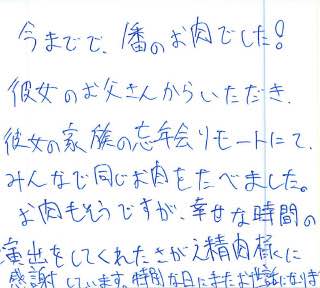 今までで、1番のお肉でした！
彼女のお父さんからいただき、
彼女の家族の忘年会リモートにて、
みんなで同じお肉をたべました。
お肉もそうですが、幸せな時間の
演出をしてくれたさがえ精肉様に
感謝しています。特別な日にまたお世話になりま